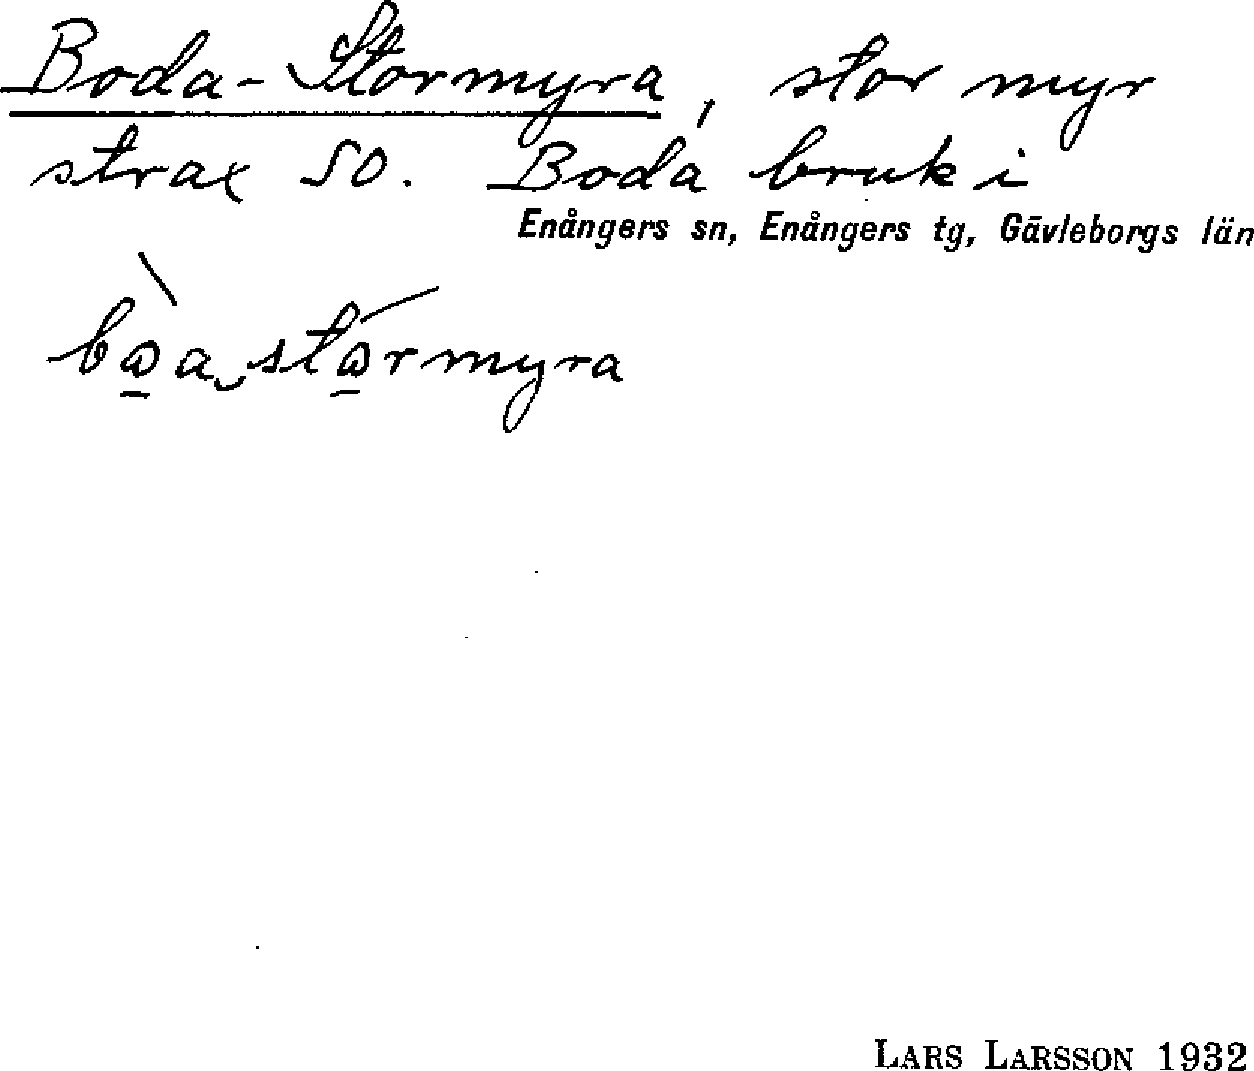 Boda-Stormyra, stor myr
strax SO. Boda bruk i
Enångers sn, Enångers tg, Gävleborgs län
bɷ̲̀a‿stɷ̲́rmyra
LARS LARSSON 1932